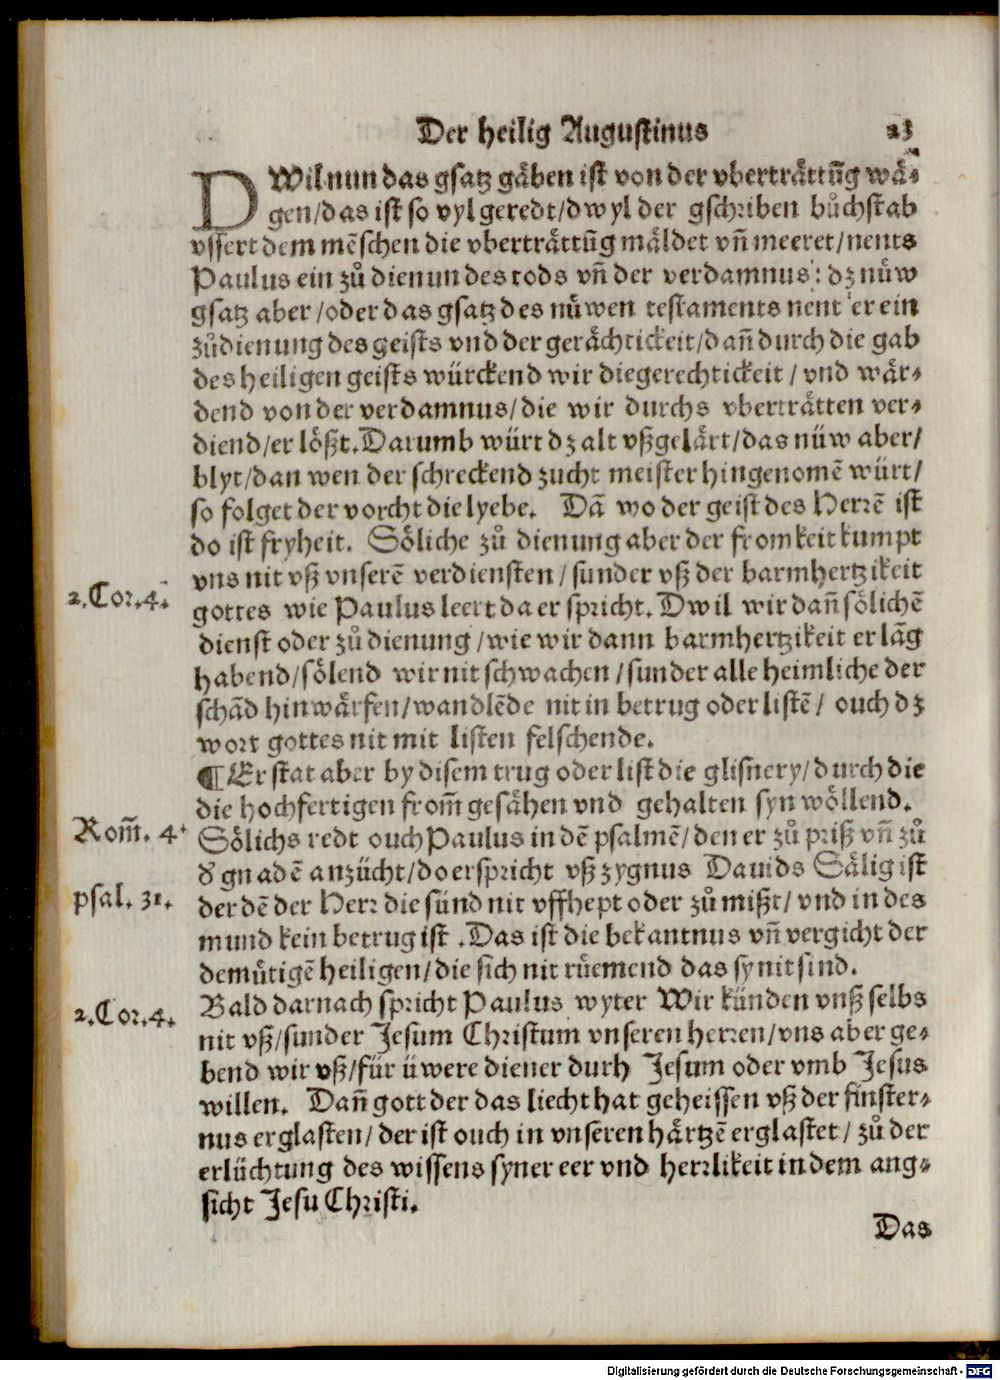 Der heilig Augustinus 23
DWil nun das gsatz gäben ist von der vberträttũg wä⸗
gen/das ist so vyl geredt/dwyl der gschriben bůchstab
vssert dem mẽschen die vberträttũg mäldet vñ meeret/nents
Paulus ein zů dienun des tods vñ der verdamnus: dz nüw
gsatz aber/oder das gsatz des nüwen testaments nent er ein
zůdienung des geists vnd der gerächtickeit/dañ durch die gab
des heiligen geists würckend wir die gerechtickeit/vnd wär⸗
dend von der verdamnus/die wir durchs vberträtten ver⸗
diend/er lößt. Darumb würt dz alt vßgelärt/das nüw aber/
blyt/dan wen der schreckend zucht meister hingenomẽ würt/
so folget der vorcht die lyebe. Dã wo der geist des Herrẽ ist
do ist fryheit. Söliche zů dienung aber der fromkeit kumpt
vns nit vß vnserẽ verdiensten/sunder vß der barmhertzikeit
2.Cor.4. gottes wie Paulus leert da er spricht. Dwil wir dañ sölichẽ
dienst oder zů dienung/wie wir dann barmhertzikeit er lãg
habend/sölend wir nit schwachen/sunder alle heimliche der
schãd hinwärfen/wandlẽde nit in betrug oder listẽ/ ouch dz
wort gottes nit mit listen felschende.
¶Er stat aber by disem trug oder list die glisnery/durch die
die hochfertigen from̃ gesähen vnd gehalten syn wöllend.
Rom̃. 4. Sölichs redt ouch Paulus in dẽ psalmẽ/den er zů priß vñ zů
ð gnadẽ anzücht/do er spricht vß zygnus Dauids Sälig ist
psal. 31. der dẽ der Herr die sünd nit vffhept oder zů mißt/ vnd in des
mund kein betrug ist. Das ist die bekantnus vñ vergicht der
demütigẽ heiligen/die sich nit rüemend das sy nit sind.
Bald darnach spricht Paulus wyter Wir künden vnß selbs
2.Cor.4. nit vß/sunder Jesum Christum vnseren herren/vns aber ge⸗
bend wir vß/für üwere diener durh Jesum oder vmb Jesus
willen. Dañ gott der das liecht hat geheissen vß der finster⸗
nus erglasten/ der ist ouch in vnseren härtzẽ erglastet/ zů der
erlüchtung des wissens syner eer vnd herrlikeit in dem ang⸗
sicht Jesu Christi.
Das
Digitalisierung gefördert durch die Deutsche Forschungsgemeinschaft - DFG